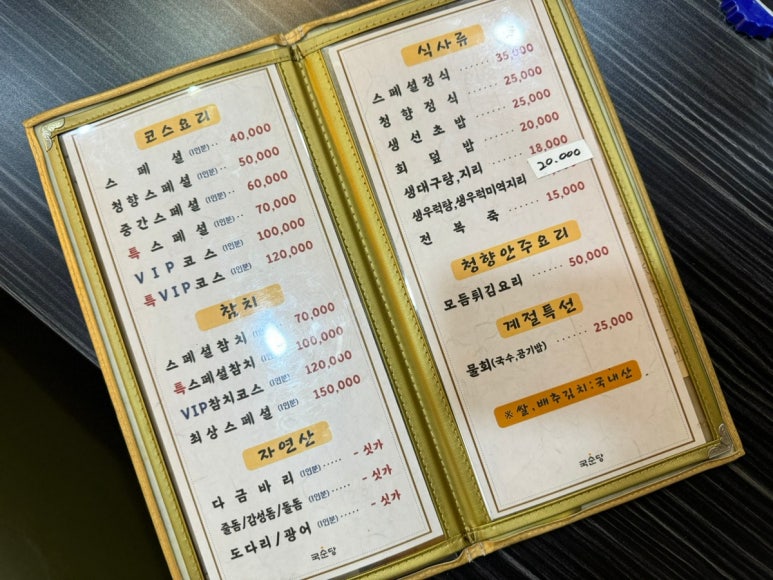 코스요리
스페셜 (1인분) ·· 40,000
청향스페셜 (1인분) ·· 50,000
중간스페셜 (1인분) ·· 60,000
특스페셜 (1인분) ·· 70,000
VIP코스 (1인분) 100,000
특VIP코스 (1인분) 120,000
참치
스페셜참치 (1인분) 70,000
특스페셜참치 (1인분) 100,000
VIP참치코스 (1인분) 120,000
최상스페셜 (1인분) 150,000
자연산
다금바리 (1인분) ····· - 싯가
줄돔/감성돔/돌돔 (1인분) ····· - 싯가
도다리/광어 (1인분) ····· - 싯가
국순당
식사류
스페셜정식 ······ 35,000
청향정식 ······ 25,000
생선초밥 ······ 25,000
회덮밥 ······ 20,000
생대구탕,지리 ······ 18,000
생우럭탕,생우럭미역지리 20.000
전복죽 ······ 15,000
청향안주요리
모듬튀김요리 ······ 50,000
계절특선
물회(국수,공기밥) ······ 25,000
※쌀,배추김치:국내산
국순당